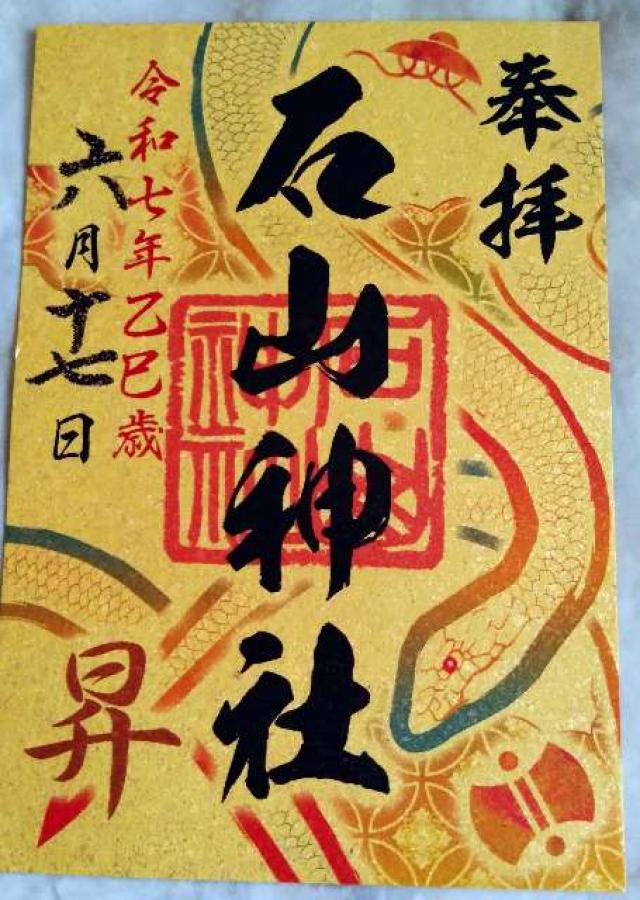 奉拝
石山神社
石山神社
令和七年乙巳歳
六月十七日
昇